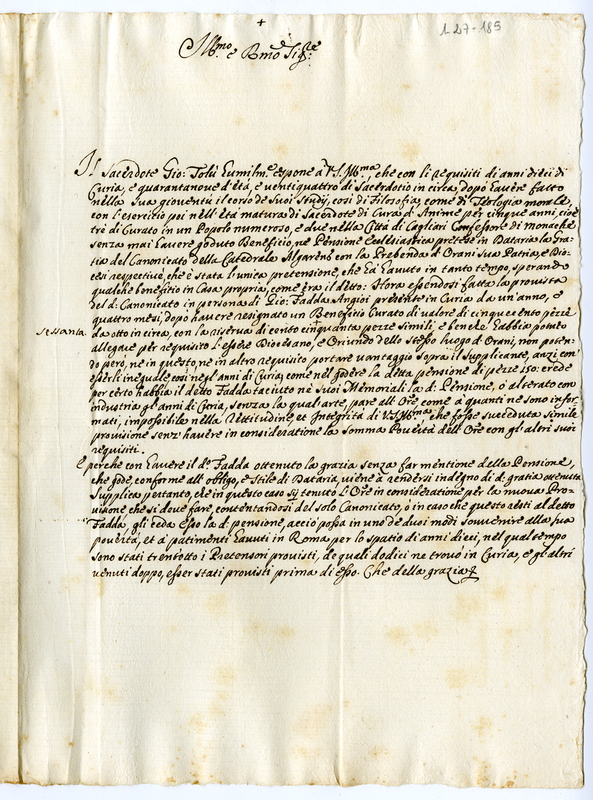 1-27-185
+
Ill.mo e R.mo Sig.re
Il Sacerdote Gio: Tolù humilm.e espone à V.S. Ill.ma, che con li requisiti di anni dieci di
Curia, e quarantanove d'età, e ventiquattro di Sacerdotio in circa, dopo havere fatto
nella sua gioventù il corso de Suoi Study, così di Filosofia, come di Teologia morale,
con l'esercitio poi nell'età matura di Sacerdote di Cura d'Anime per cinque anni, cioè
trè di Curato in un Popolo numeroso, e due nella Città di Cagliari Confessore di monache
senza mai havere goduto Beneficio, nè Pensione Ecclesiastica pretese in Dataria la Gra-
tia del Canonicato della Catedrale Algarens con la Prebenda d'Orani sua Patria, e Dio-
cesi respectivè, che è stata l'unica pretensione, che hà havuto in tanto tempo, sperando
qualche beneficio in Casa propria, come era il detto: Hora essendosi fatta la provista
del d.o Canonicato in persona di Gio: Fadda Angioi presente in Curia da un'anno, e
quattro mesi, dopo havere resignato un Beneficio Curato di valore di cinquecento pezze
Sessanta. da otto in circa, con la riserva di cento cinquanta pezze simili, e benche habbia potuto
allegare per requisito l'essere Diocesano, e Oriundo dello stesso luogo d'Orani, non poten-
do però, ne in questo, ne in altro requisito portare vantaggio sopra il Supplicante, anzi con
esserli ineguale, così negl'anni di Curia, come nel godere la detta pensione di pezze 150: crede
per certo habbia il detto Fadda taciuto ne Suoi Memoriali la d.a Pensione, ò alterato con
industria gl'anni di Curia, senza la qual'arte, pare all'Ore come à quanti ne sono infor-
mati, impossibile nella Rettitudine, et Integrità di V.S. Ill.ma, che fosse succeduta simile
provisione senz'havere in consideratione la somma Povertà dell'Ore con gl'altri suoi
requisiti.
E perche con havere il d.o Fadda ottenuto la grazia senza far mentione della Pensione,
che gode, conforme all'obligo, e stile di Dataria, viene à rendersi indegno di d.a gratia ottenuta
Supplica pertanto, che in questo caso sij tenuto l'Ore in consideratione per la nuova Pro-
visione che si deve fare, contentandosi del solo Canonicato, ò in caso che questo resti al detto
Fadda, gli ceda esso la d.a pensione, acciò possa in uno de duoi modi souvenire alla sua
povertà, et à patimenti havuti in Roma per lo spatio di anni dieci, nel qual tempo
sono stati trentotto i Pretensori provisti, de quali dodici ne trovò in Curia, e gl'altri
venuti doppo, esser stati provisti prima di esso. Che della grazia &